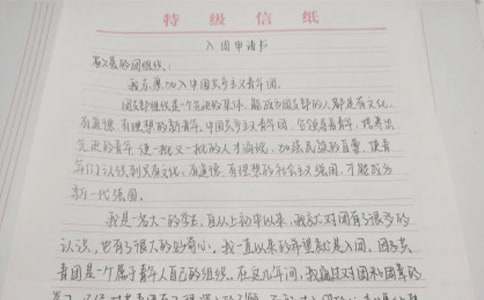 特级信纸
入团申请书
敬爱的团组织：
我志愿加入中国共产主义青年团。
团支部组织是一个先进的集体，能成为团支部的人都是有文化、
有道德、有理想的新青年。中国共产主义青年团，它领导着青年，培养出
先进的青年，使一批又一批的人才涌现，加强民族的重量，使青
年们认识到只有文化，有道德，有理想的社会主义强国，才能成为
新一代强国。
我是一名大一的学生，自从上初中以来，我就对团有了很多的
认识，也有了很大的好奇心。我一直以来的希望就是入团。因为共
青团是一个属于青年人自己的组织。在这几年间，我通过对团和团章的